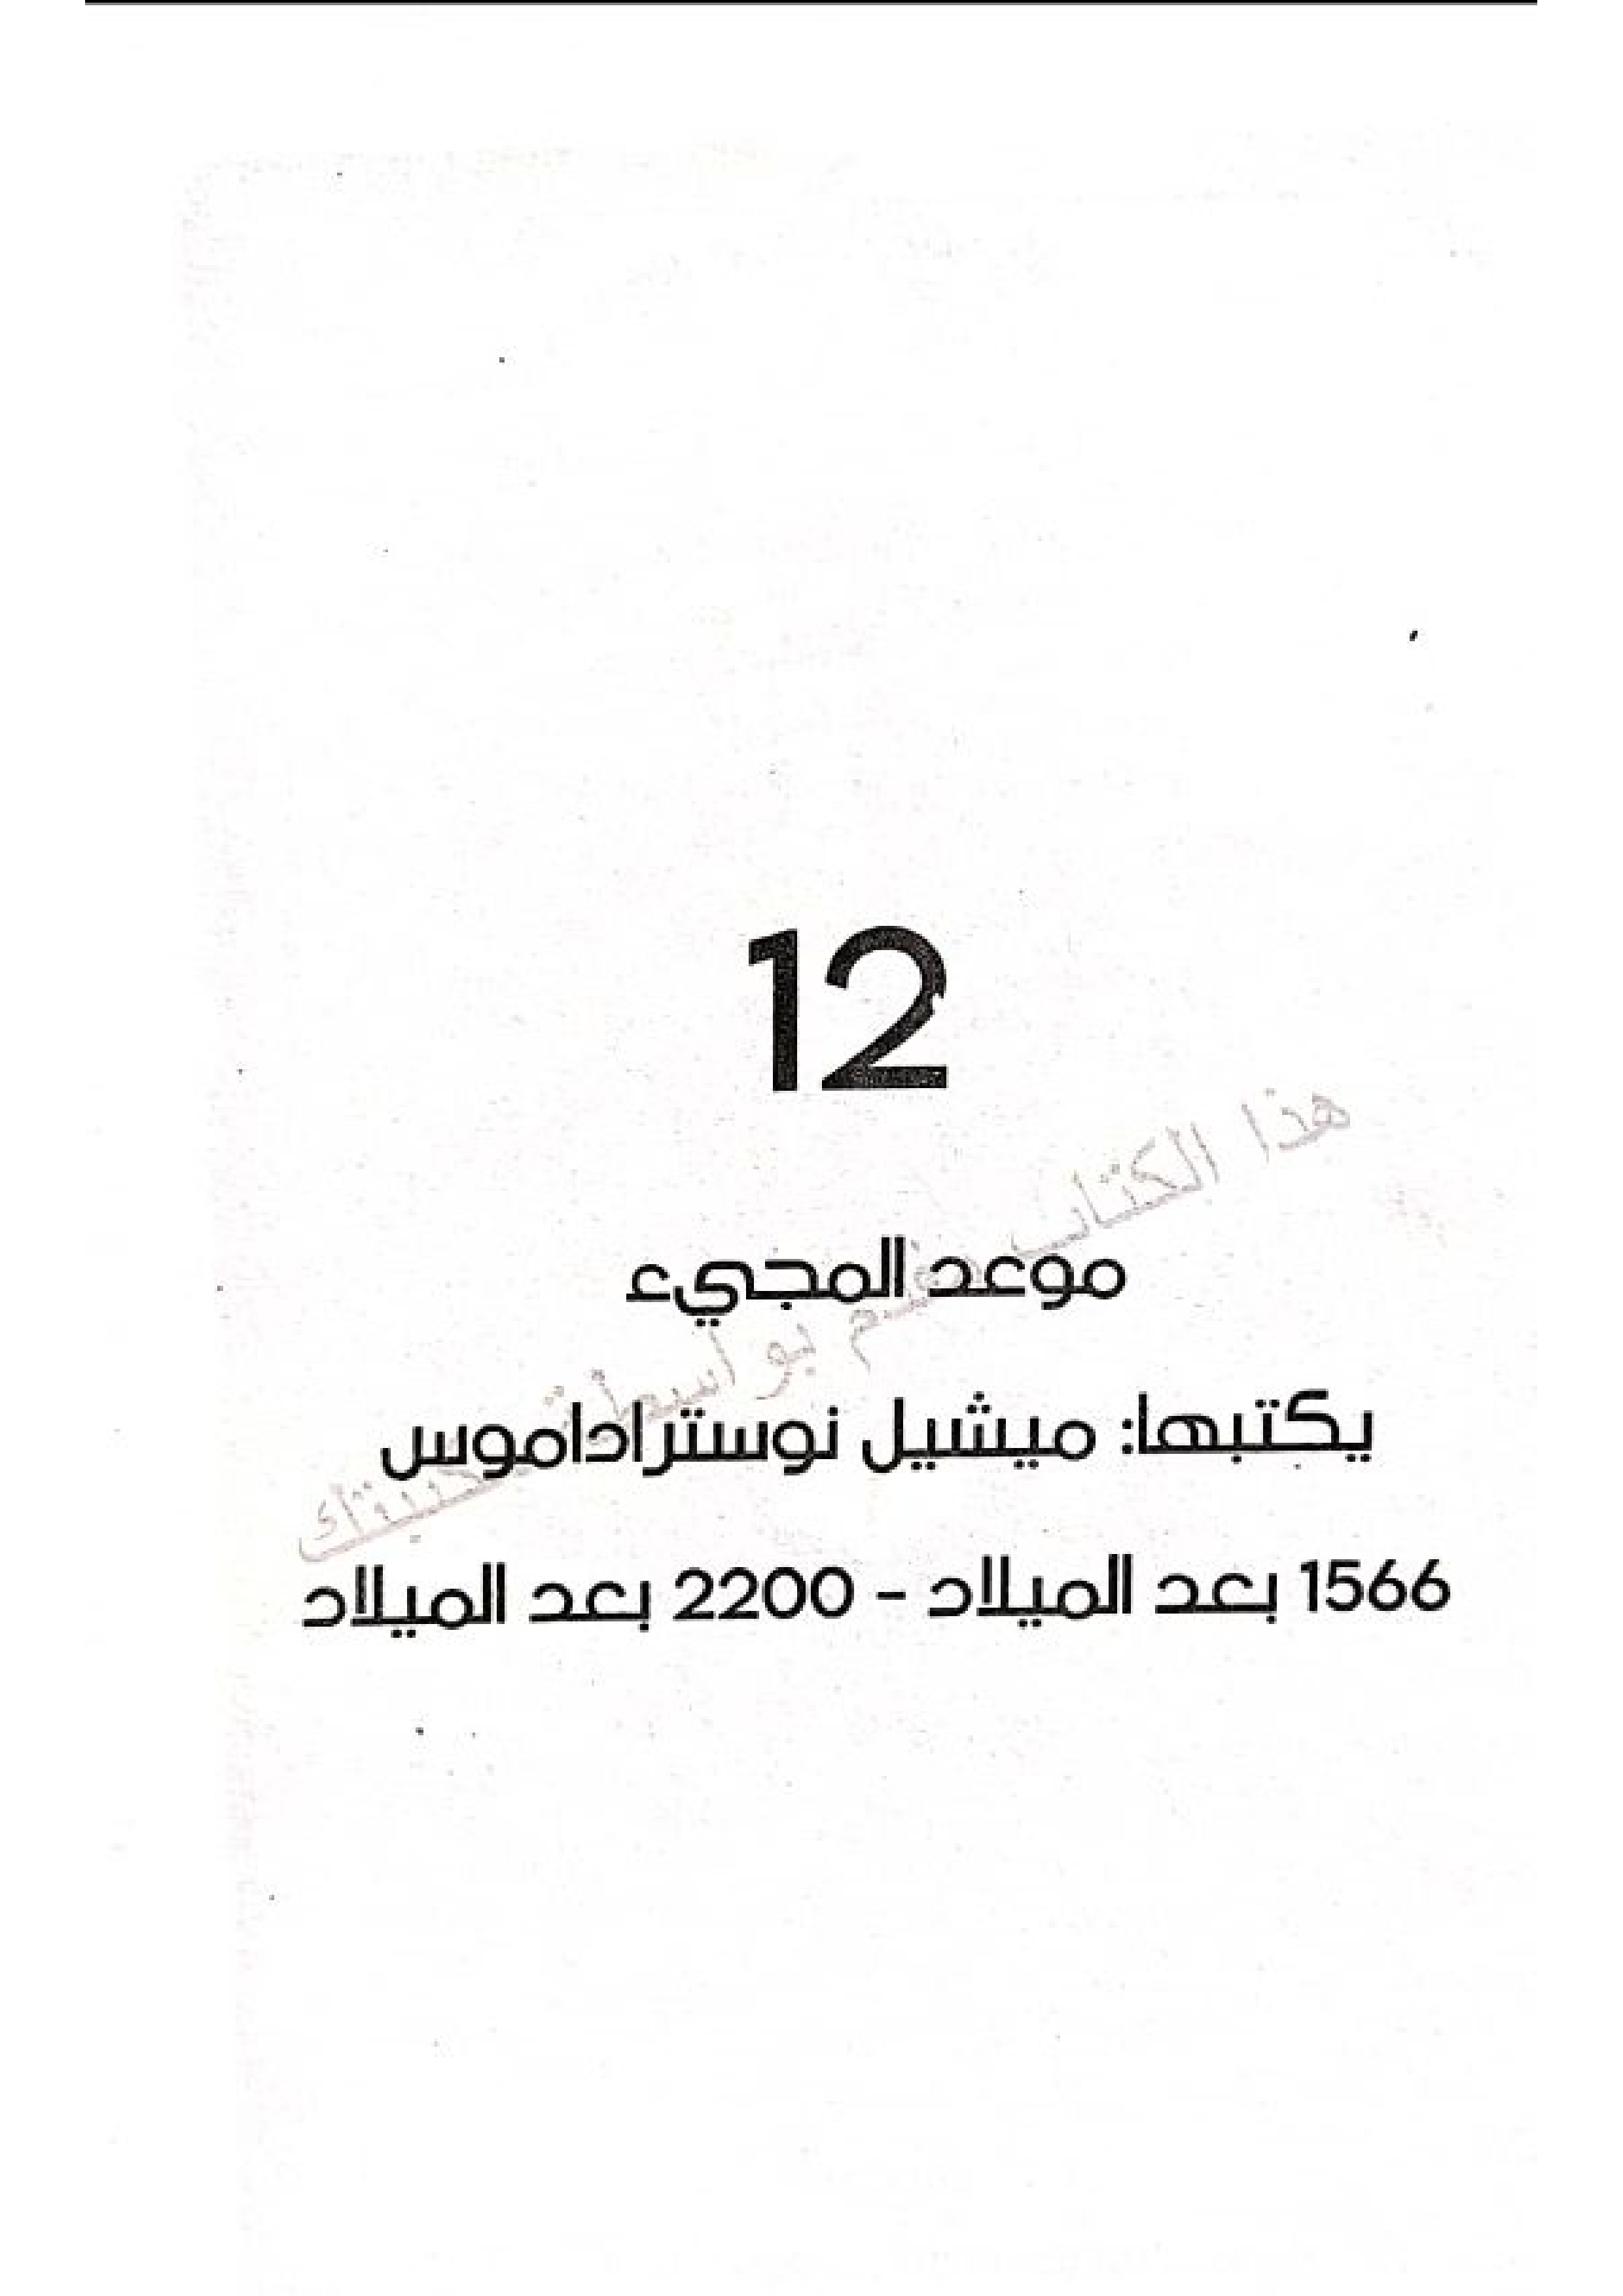 12
هذا الكتاب بواسطة
موعد المجيء
يكتبها: ميشيل نوستراداموس
1566 بعد الميلاد - 2200 بعد الميلاد